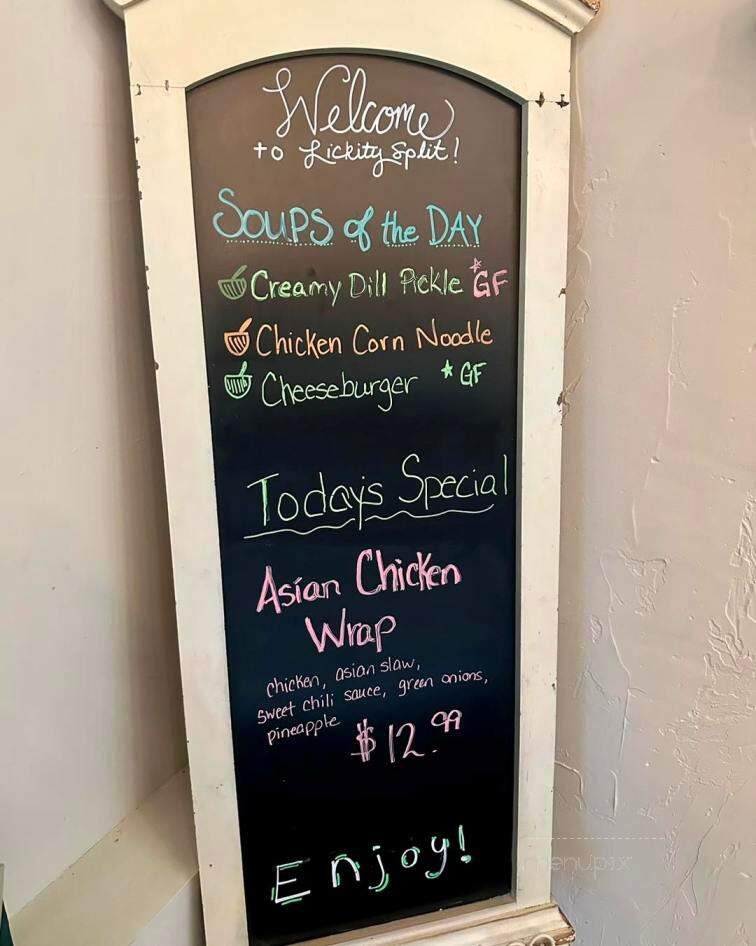 Welcome
to Lickity Split!
SOUPS of the DAY
Creamy Dill Pickle *GF
Chicken Corn Noodle
Cheeseburger *GF
Today's Special
Asian Chicken
Wrap
chicken, asian slaw,
sweet chili sauce, green onions,
pineapple
$12.99
Enjoy!
menupix